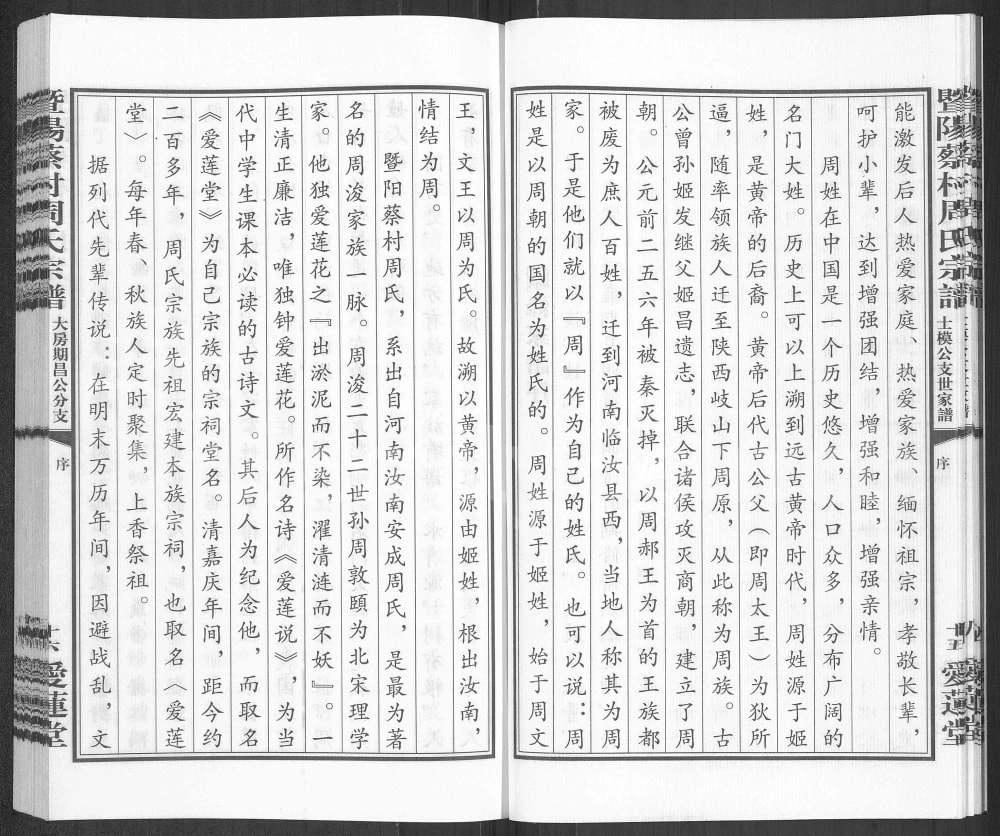 暨陽蔡村周氏宗譜
士模公支世家譜
序
十五
愛蓮堂
能激发后人热爱家庭、热爱家族、缅怀祖宗，孝敬长辈，
呵护小辈，达到增强团结，增强和睦，增强亲情。
周姓在中国是一个历史悠久，人口众多，分布广阔的
名门大姓。历史上可以上溯到远古黄帝时代，周姓源于姬
姓，是黄帝的后裔。黄帝后代古公父（即周太王）为狄所
逼，随率领族人迁至陕西岐山下周原，从此称为周族。古
公曾孙姬发继父姬昌遗志，联合诸侯攻灭商朝，建立了周
朝。公元前二五六年被秦灭掉，以周郝王为首的王族都
被废为庶人百姓，迁到河南临汝县西，当地人称其为周
家。于是他们就以『周』作为自己的姓氏。也可以说：周
姓是以周朝的国名为姓氏的。周姓源于姬姓，始于周文
王，文王以周为氏。故溯以黄帝，源由姬姓，根出汝南，
情结为周。
暨阳蔡村周氏，系出自河南汝南安成周氏，是最为著
名的周浚家族一脉。周浚二十二世孙周敦頤为北宋理学
家。他独爱莲花之『出淤泥而不染，濯清涟而不妖』。一
生清正廉洁，唯独钟爱莲花。所作名诗《爱莲说》，为当
代中学生课本必读的古诗文。其后人为纪念他，而取名
《爱莲堂》为自己宗族的宗祠堂名。清嘉庆年间，距今约
二百多年，周氏宗族先祖宏建本族宗祠，也取名《爱莲
堂》。每年春、秋族人定时聚集，上香祭祖。
据列代先辈传说：在明末万历年间，因避战乱，文
暨陽蔡村周氏宗譜
大房期昌公分支
序
十六
愛蓮堂